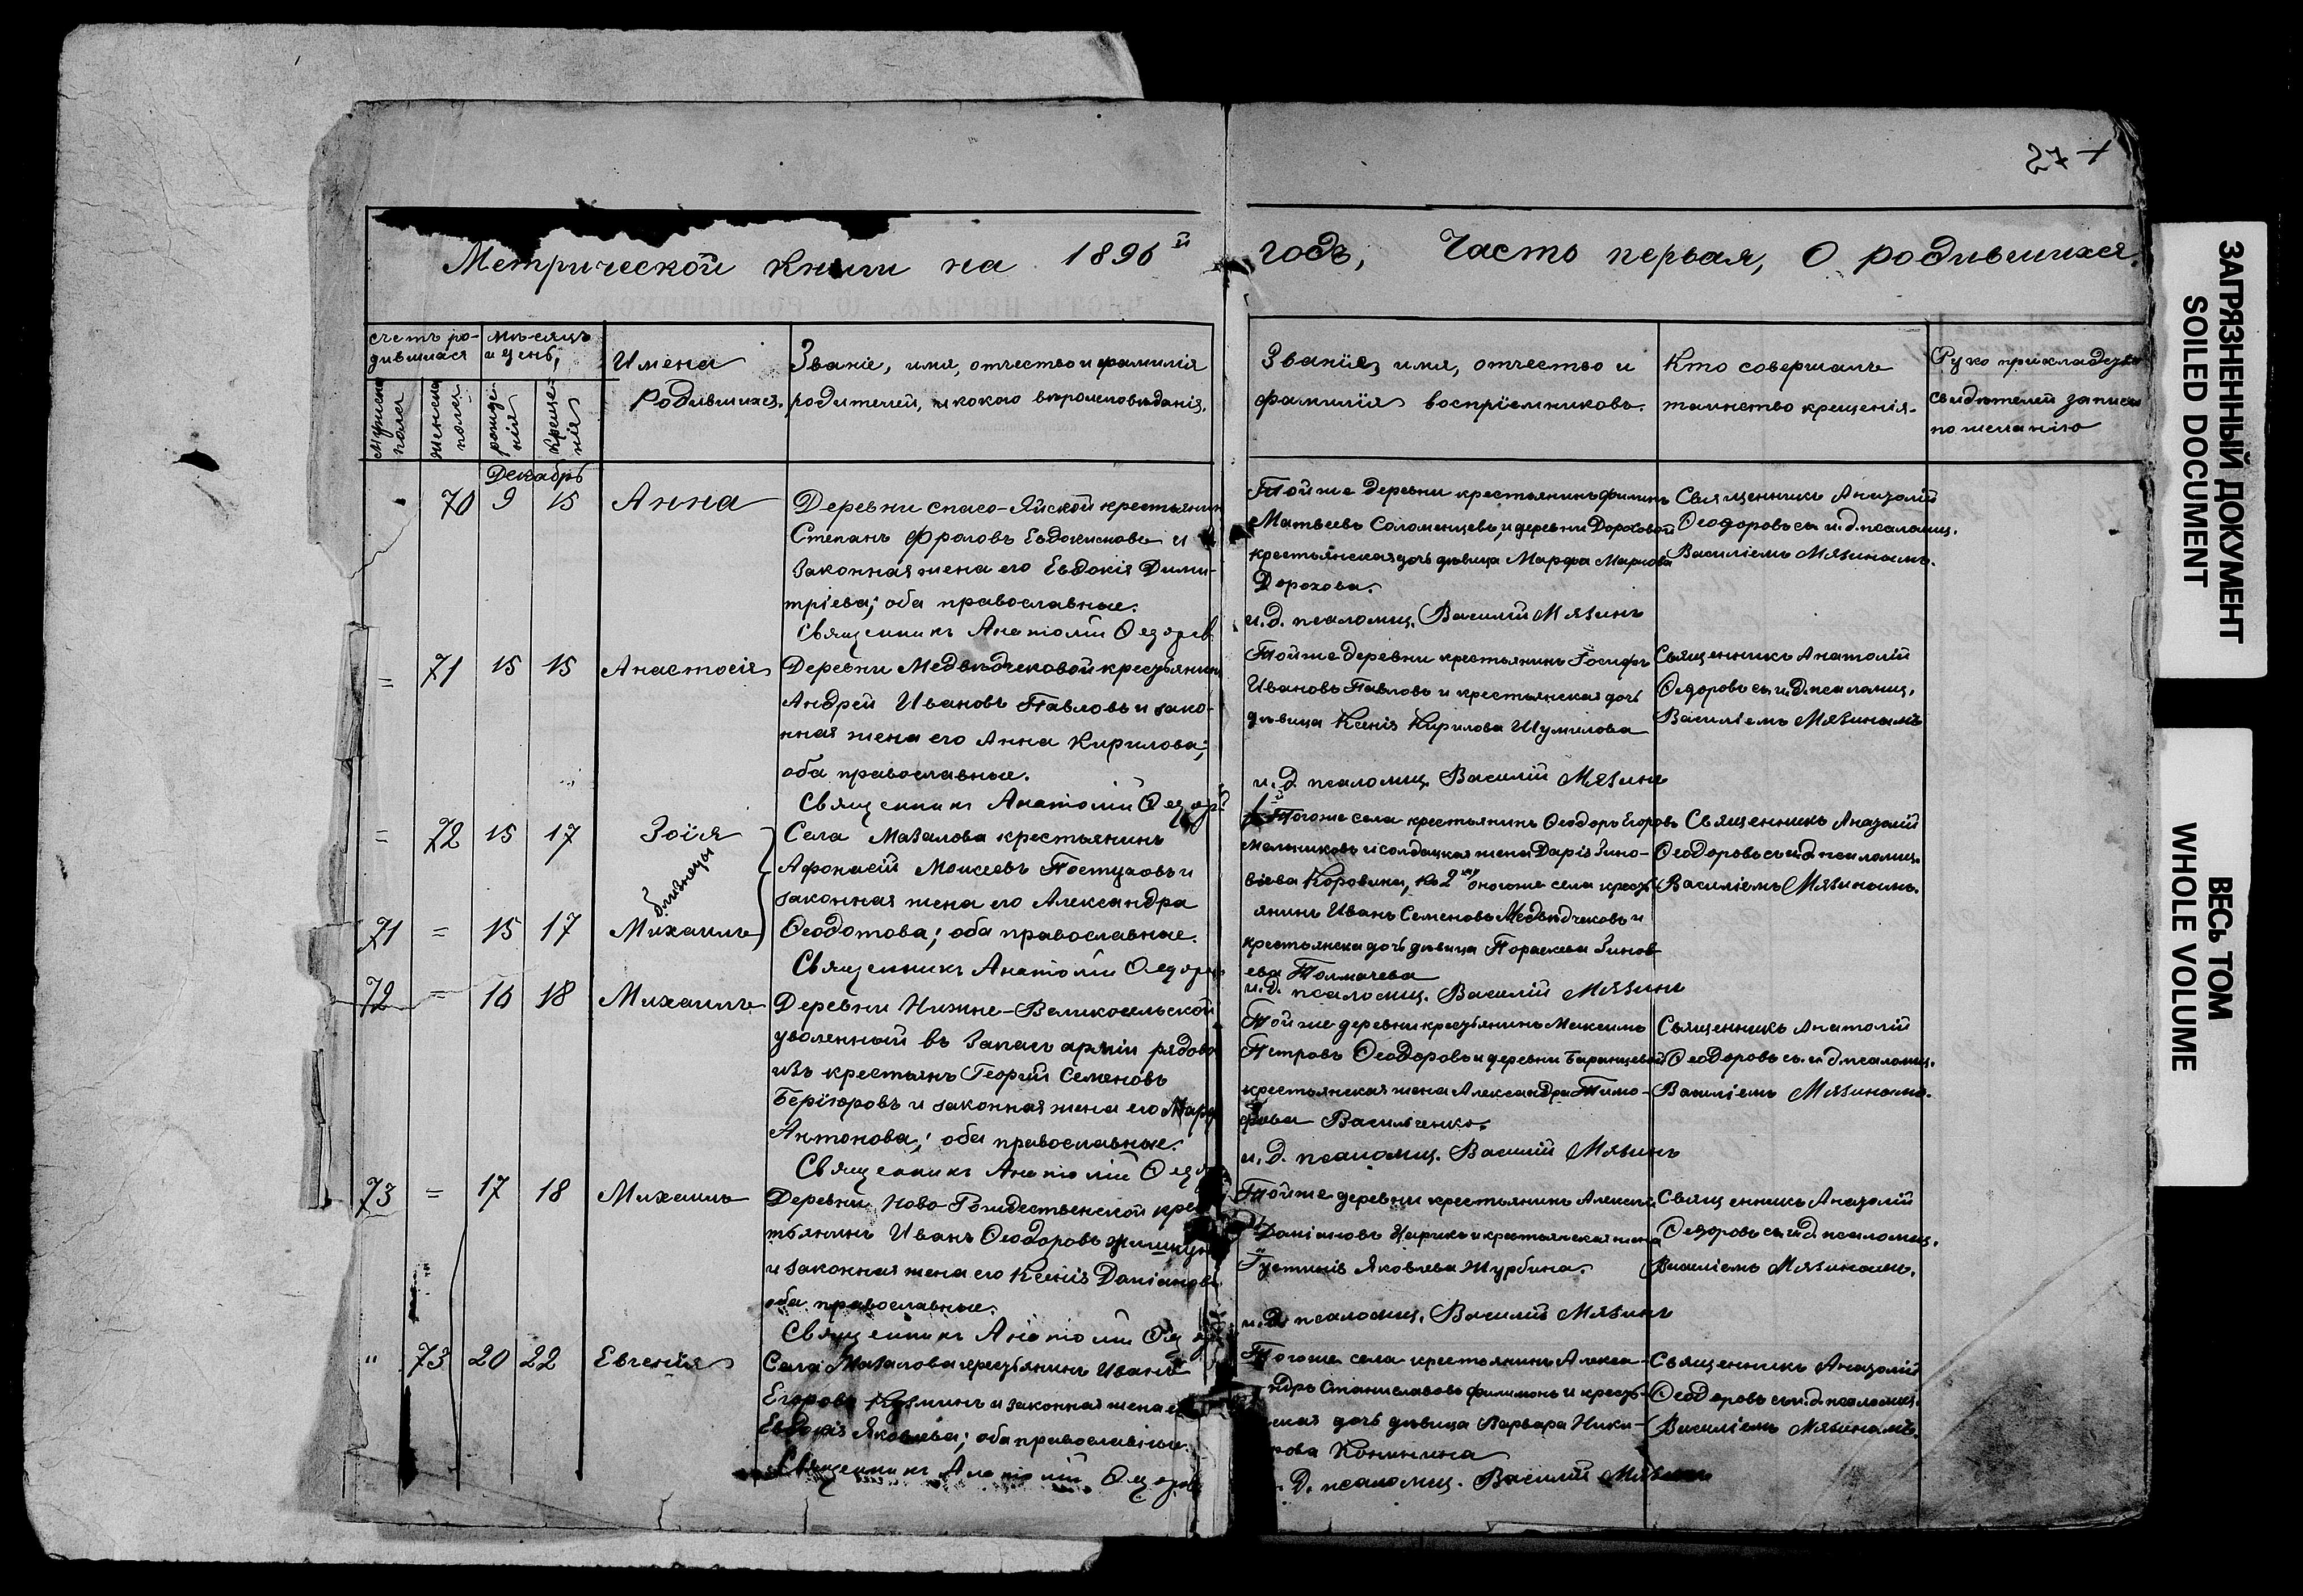 27
Метрической Книги на 1896й годъ, Часть первая, О родившихся.
счетъ ро-
дившихся
мѣсяцъ
и день,
Мужска
пола
женска
пола
рожде-
нія
креще-
нія
Имена
Родившихся.
Званіе, имя, отчество и фамилія
родителей, и какого вѣроисповѣданія.
Званіе, имя, отчество и
фамилія воспріемниковъ.
Кто совершалъ
таинство крещенія.
свидѣтелей записи
по желанію
Декабрь
70 9 15 Анна
Деревни Спасо-Яйской крестьянин
Степанъ Фроловъ Евдокимовъ и
законная жена его Евдокія Дими-
тріева; оба православные.
Священникъ Анатолій Ѳедоров
Тойже деревни крестьянинъ Филипъ
Матвеевъ Соломенцевъ, и деревни Дороховой
крестьянская дочь дѣвица Марфа Маркова
Дорохова.
и. д. псаломщ. Василій Мязинъ
Священникъ Анатолій
Ѳеодоровъ съ и. д. псаломщ.
Василіемъ Мязинымъ.
= 71 15 15 Анастасія
Деревни Медвѣдчековой крестьянин
Андрей Ивановъ Павловъ и зако-
нная жена его Анна Кирилова;
оба православные.
Священникъ Анатолій
Тойже деревни крестьянинъ Іосифъ
Ивановъ Павловъ и крестьянская дочь
дѣвица Ксенія Кирилова Шумилова
и. д. псаломщ. Василій Мязинъ
Священникъ Анатолій
Ѳедоровъ съ и. д. псаломщ.
Василіемъ Мязинымъ
= 72 15 17 Зоія
близнецы
71 = 15 17 Михаилъ
Села Мазалова крестьянинъ
Афонасій Моисеевъ Пастуховъ и
законная жена его Александра
Ѳеодотова; оба православные.
Священникъ Анатолій
Тогоже села крестьянинъ Ѳеодоръ Егоровъ
Мельниковъ и солдацкая жена Дарія Зино-
віева Коровина, ко 2му онагоже села крест
янинъ Иванъ Семеновъ Медвѣдчековъ и
крестьянска дочь дѣвица Параскева Зинов
ева Толмачева
и. д. псаломщ. Василій Мязинъ
Священникъ Анатолій
Ѳеодоровъ съ и. д. псаломщ.
Василіемъ Мязинымъ.
72 = 16 18 Михаилъ
Деревни Нижне-Великосельской
уволенный въ запасъ арміи рядово
изъ крестьянъ Георгій Семеновъ
и законная жена его
Антонова; оба православные.
Священникъ Анатолій
Тойже деревни крестьянинъ Максимъ
Петровъ Ѳеодоровъ и деревни Баранцевой
крестьянская жена Александра Тимо-
фѣева Васильченко.
и. д. псаломщ. Василій Мязинъ
Священникъ Анатолій
Ѳеодоровъ съ и. д. псаломщ.
Василіемъ Мязинымъ.
73 = 17 18 Михаилъ
Деревни Ново-Рождественской крес
тьянинъ Иванъ Ѳеодоровъ
и законная жена его Ксенія Даміанова
оба православные.
Священникъ Анатолій
Тойже деревни крестьянинъ Алексѣй
Даміановъ Царикъ и крестьянская жена
Іустинія Яковлева Журбина.
и. д. псаломщ. Василій Мязинъ
Священникъ Анатолій
Ѳедоровъ съ и. д. псаломщ.
Василіемъ Мязинымъ.
" 73 20 22 Евгенія
Села Мазалова крестьянинъ Иванъ
Егоровъ Кузминъ и законная жена его
Евдокія Яковлева; оба православные.
Священникъ Анатолій Ѳедоров
Тогоже села крестьянинъ Алекса-
ндръ Станиславовъ Филимонъ и кресть-
ская дочь дѣвица Варвара Ники-
Конинина
д. псаломщ. Василій Мязинъ
Священникъ Анатолій
Ѳеодоровъ съ и. д. псаломщ.
Василіемъ Мязинымъ.
ЗАГРЯЗНЕННЫЙ ДОКУМЕНТ
SOILED DOCUMENT
ВЕСЬ ТОМ
WHOLE VOLUME